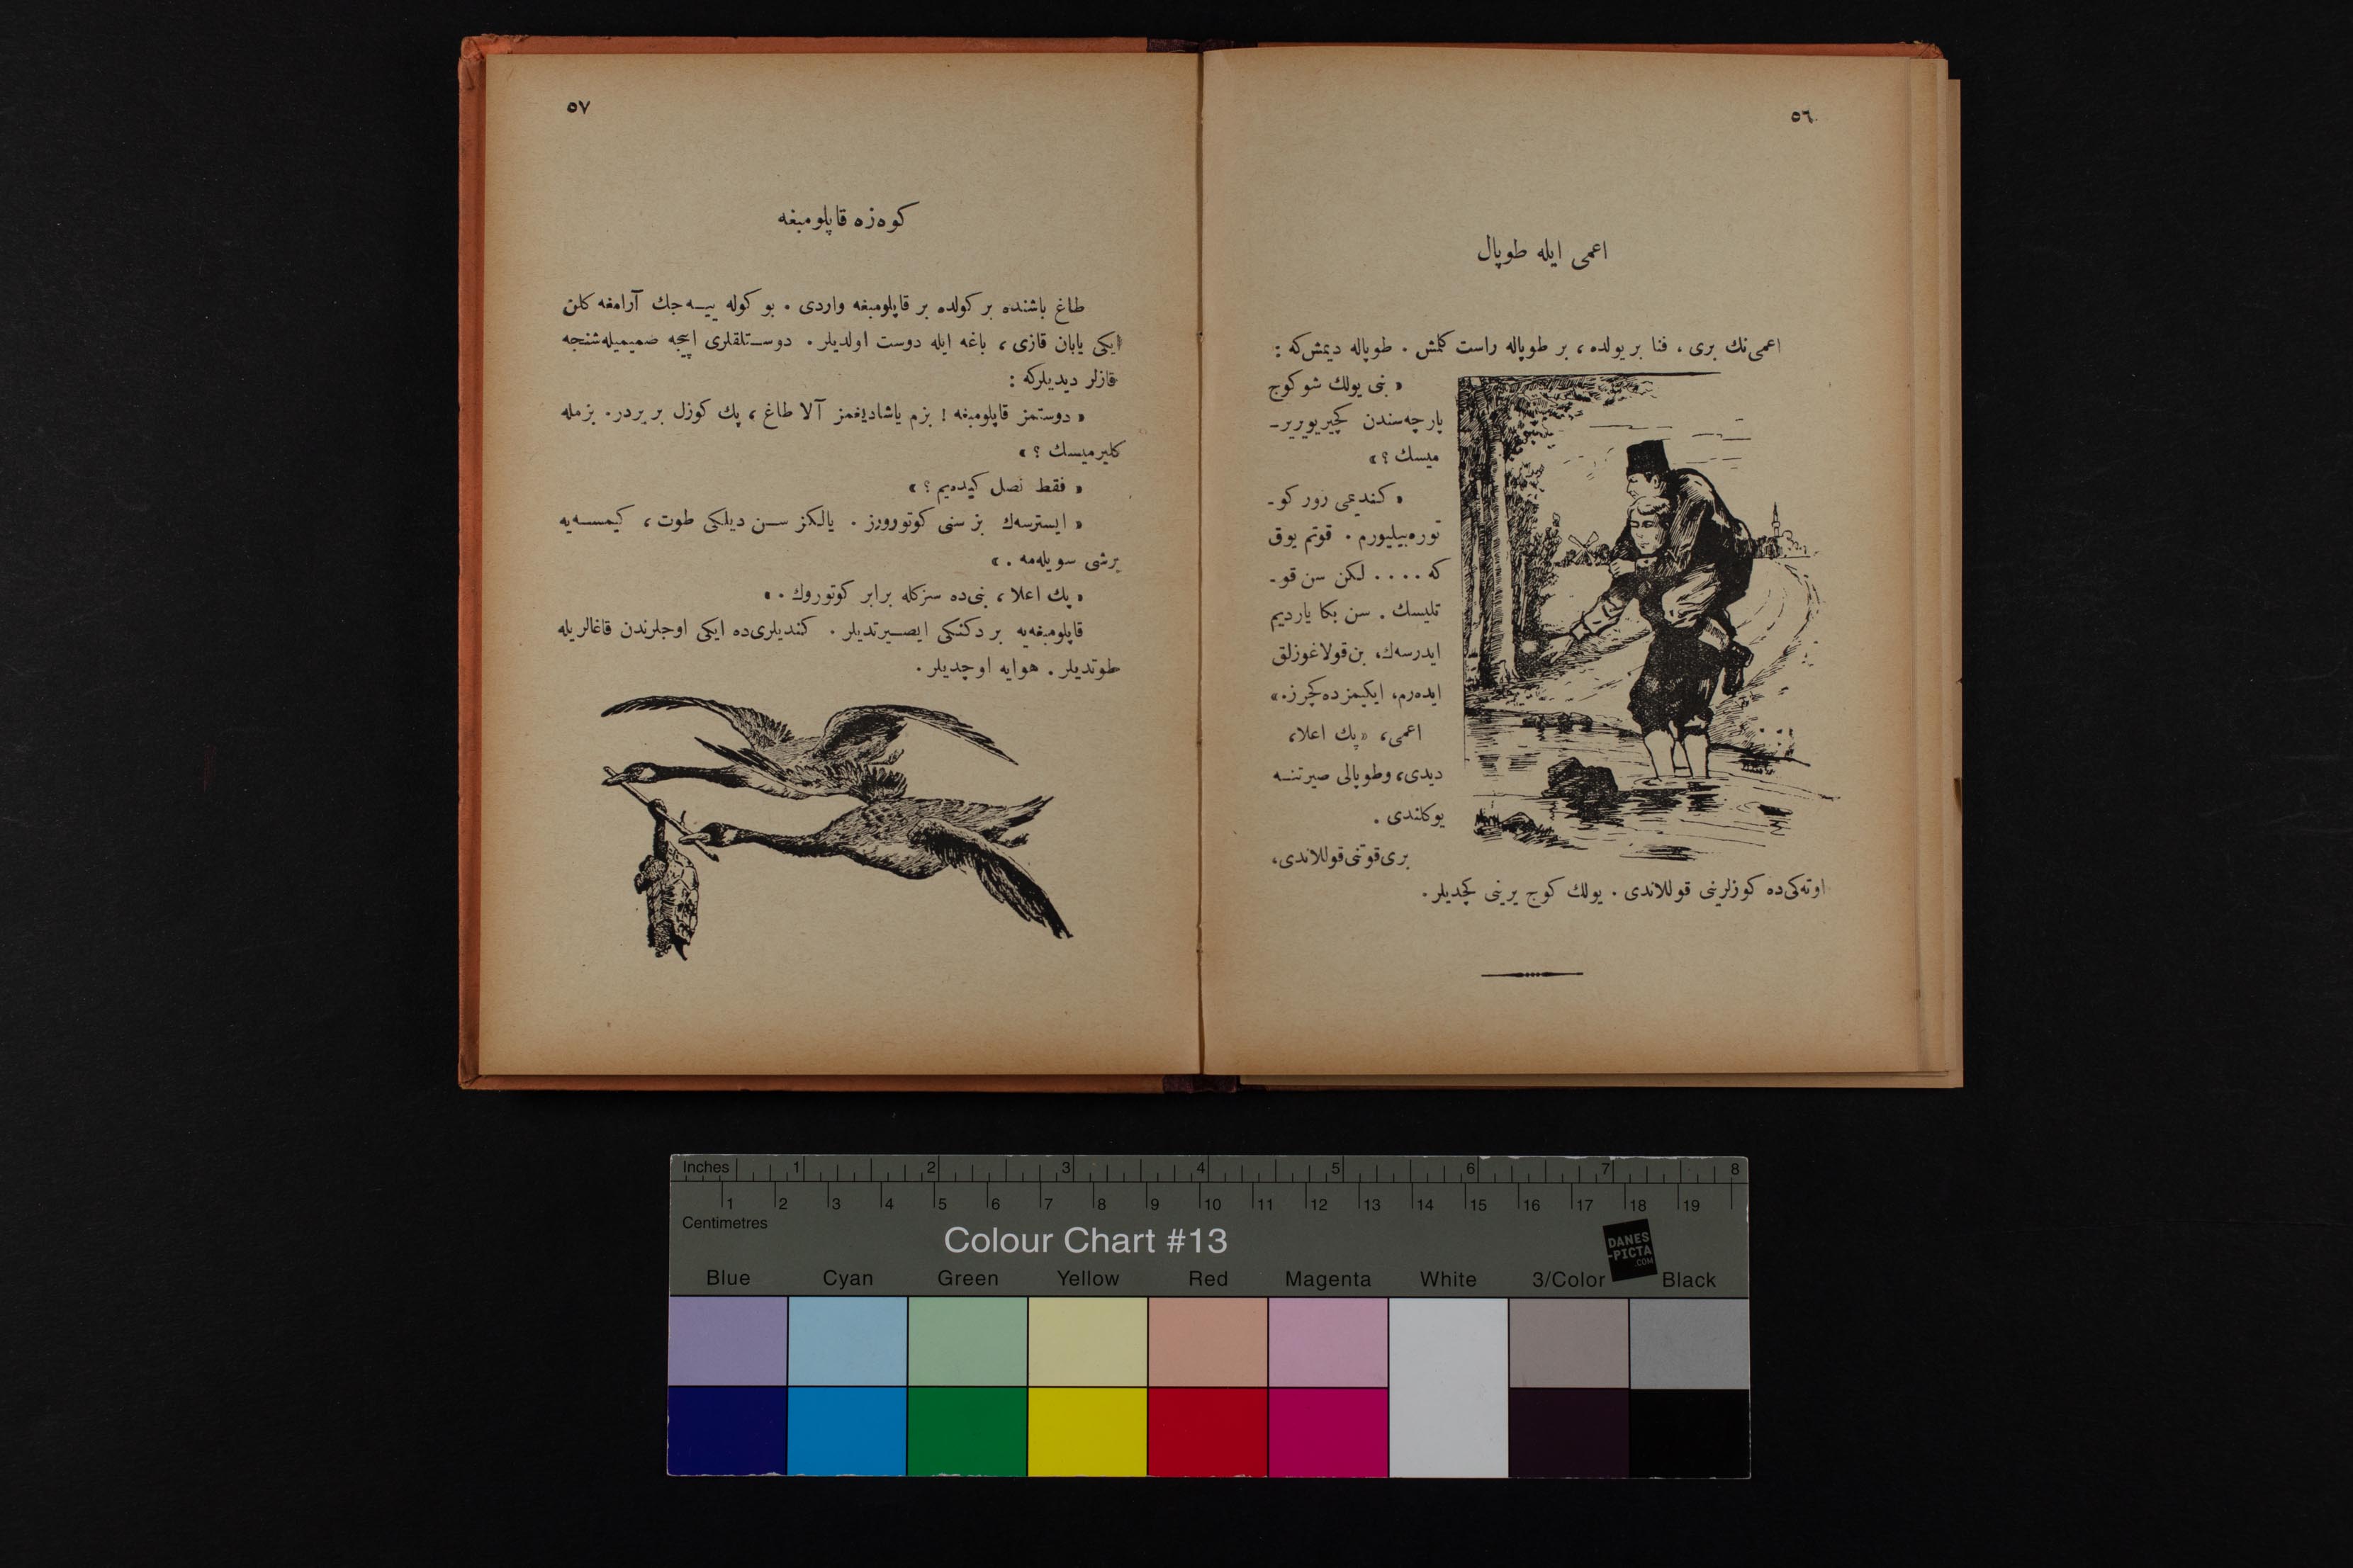 ٥٦
اعمى ايله طوپال
اعمى‌نك برى ، فنا بر يولده ، بر طوپاله راست كلمش . طوپاله ديمش‌كه :
« بنى يولك شو كوج
پارچه‌سندن كچيريويرير-
ميسك ؟ »
« كنديمى زور كو-
توره‌بيليورم . قوتم يوق
كه .... لكن سن قو-
تليسك . سن بكا يارديم
ايدرسه‌ك، بن قولاغوزلق
ايده‌رم، ايكيمزده كچرز. »
اعمى، « پك اعلا،
ديدى، و طوپالى صيرتنه
يوكلندى .
برى قوتنى قوللاندى،
اوته‌كى‌ده كوزلرينى قوللاندى . يولك كوج يرينى كچديلر .
٥٧
كوه‌زه قاپلومبغه
طاغ باشنده بر كولده بر قاپلومبغه واردى . بو كوله ييه‌جك آرامغه كلن
ايكى يابان قازى ، باغه ايله دوست اولديلر . دوستلقلرى اييجه صميميله‌شنجه
قازلر ديديلركه :
« دوستمز قاپلومبغه ! بزم ياشاديغمز آلا طاغ ، پك كوزل بر يردر. بزمله
كليرميسك ؟ »
« فقط نصل كيده‌يم ؟ »
« ايسترسه‌ك بز سنى كوتورورز . يالكز سن ديلكى طوت ، كيمسه‌يه
برشى سويله‌مه . »
« پك اعلا ، بنى‌ده سزكله برابر كوتورك . »
قاپلومبغه‌يه بر دكنكى ايصيرتديلر . كنديلرى‌ده ايكى اوجلرندن قاغالريله
طوتديلر . هوايه اوچديلر .
Inches 1 2 3 4 5 6 7 8
1 2 3 4 5 6 7 8 9 10 11 12 13 14 15 16 17 18 19
Centimetres
Colour Chart #13
DANES
-PICTA
.COM
Blue Cyan Green Yellow Red Magenta White 3/Color Black